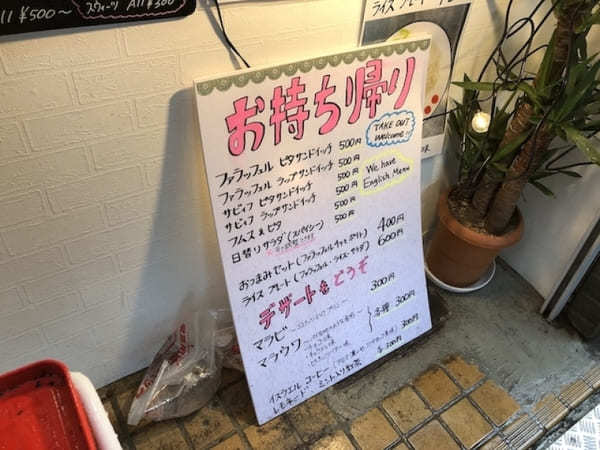 All ¥500〜
スウィーツ All ¥300
ライス プレート
お持ち帰り
TAKE OUT
Welcome!!
ファラッフェル ピタサンドイッチ 500円
ファラッフェル ラップサンドイッチ 500円
サビィフ ピタサンドイッチ 500円
サビィフ ラップサンドイッチ 500円
フムス & ピタ 500円
日替りサラダ (スパイシー) 500円
We have
English Menu
おつまみセット (ファラッフェル
400円
ライス プレート (ファラッフェル・ライス・サラダ) 600円
デザートもどうぞ
マラビ 300円
マラウワ
各種 300円
イスラエル コーヒー
300円
レモネード ミント入り